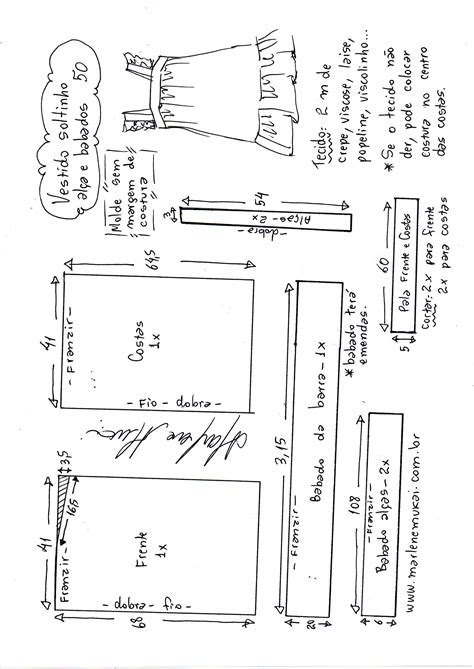 Vestido soltinho
alça e babados 50
Molde sem
margem de
costura
Tecido: 2 m de
crepe, viscose, laise,
popeline, viscolinho...
* Se o tecido não
der, pode colocar
costura no centro
das costas.
54
3
Alças - 2x
- dobra -
64,5
41
- Franzir -
Costas
1x
- Fio - dobra -
60
5
Pala Frente e Costas
Cortar: 2x para frente
2x para costas
3,15
20
- Franzir -
Babado da barra - 1x
* babado terá
emendas.
3,5
16,5
41
Franzir -
Frente
1x
- fio - dobra -
68
108
4
6
- Franzir -
Babado alças - 2x
www.marlenemukai.com.br